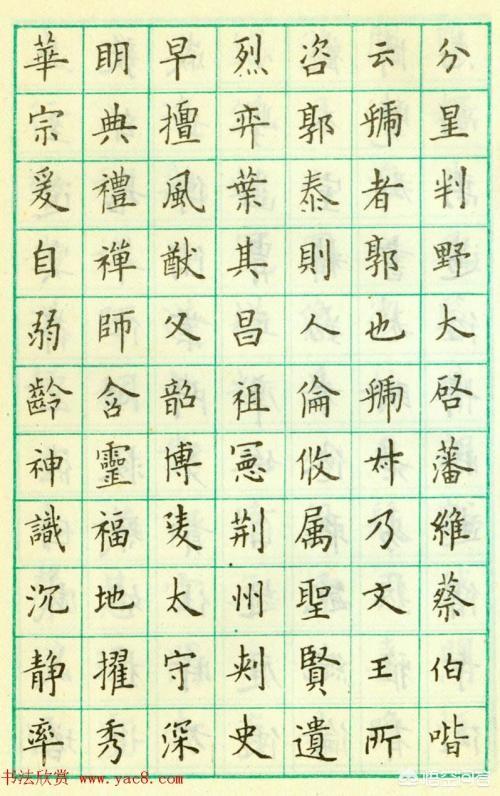 分星判野大啓藩維蔡伯喈
云虢者郭也虢叔乃文王所
咨郭泰則人倫攸属聖賢遺
烈弈葉其昌祖憲荊州刾史
早擅風猷父韶博陵太守深
明典禮禪師含靈福地擢秀
華宗爰自弱齡神識沉静率
书法欣赏 www.yac8.com
悟空问答